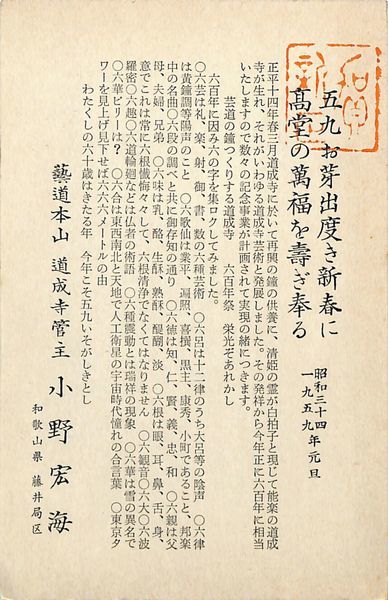 五九お芽出度き新春に
高堂の萬福を壽ぎ奉る
昭和三十四
一九五九年 元旦
正平十四年春三月道成寺に於いて再興の鐘の供養に、清姫の霊が白拍子と現じて能楽の道成
寺が生れ、それがいわゆる道成寺芸術と発展しました。その発祥から今年正に六百年に相当
いたしますので数々の記念事業が計画されて実現の緒につきます。
芸道の鐘つくりする道成寺 六百年祭 栄光ぞあれかし
六百年に因み六の字を集ロクしてみました。
〇六芸は礼、楽、射、御、書、数の六種芸術 〇六呂は十二律のうち大呂等の陰声 〇六律
は黄鐘調等陽声のこと 〇六歌仙は業平、遍照、喜撰、黒主、康秀、小町であること、邦楽
中の名曲〇六段の調べと共に御存知の通り 〇六徳は知、仁、賢、義、忠、和 〇六親は父
母、夫婦、兄弟 〇六味は乳、酪、生酥、熟酥、醍醐、淡 〇六根は眼、耳、鼻、舌、身、
意でこれは常に六根懺悔々々して、六根清浄でなくてはなりません 〇六観音〇六大〇六波
羅密〇六趣〇六道輪廻などは仏者の術語 〇六種震動とは瑞祥の現象 〇六華は雪の異名で
〇六華ピリーは？ 〇六合は東西南北と天地で人工衛星の宇宙時代憧れの合言葉 〇東京タ
ワーを見上げ見下せば六六六メートルの由
わたくしの六十歳はきたる年 今年こそ五九いそがしきとし
藝道本山 道成寺管主 小野宏海
和歌山県 藤井局区